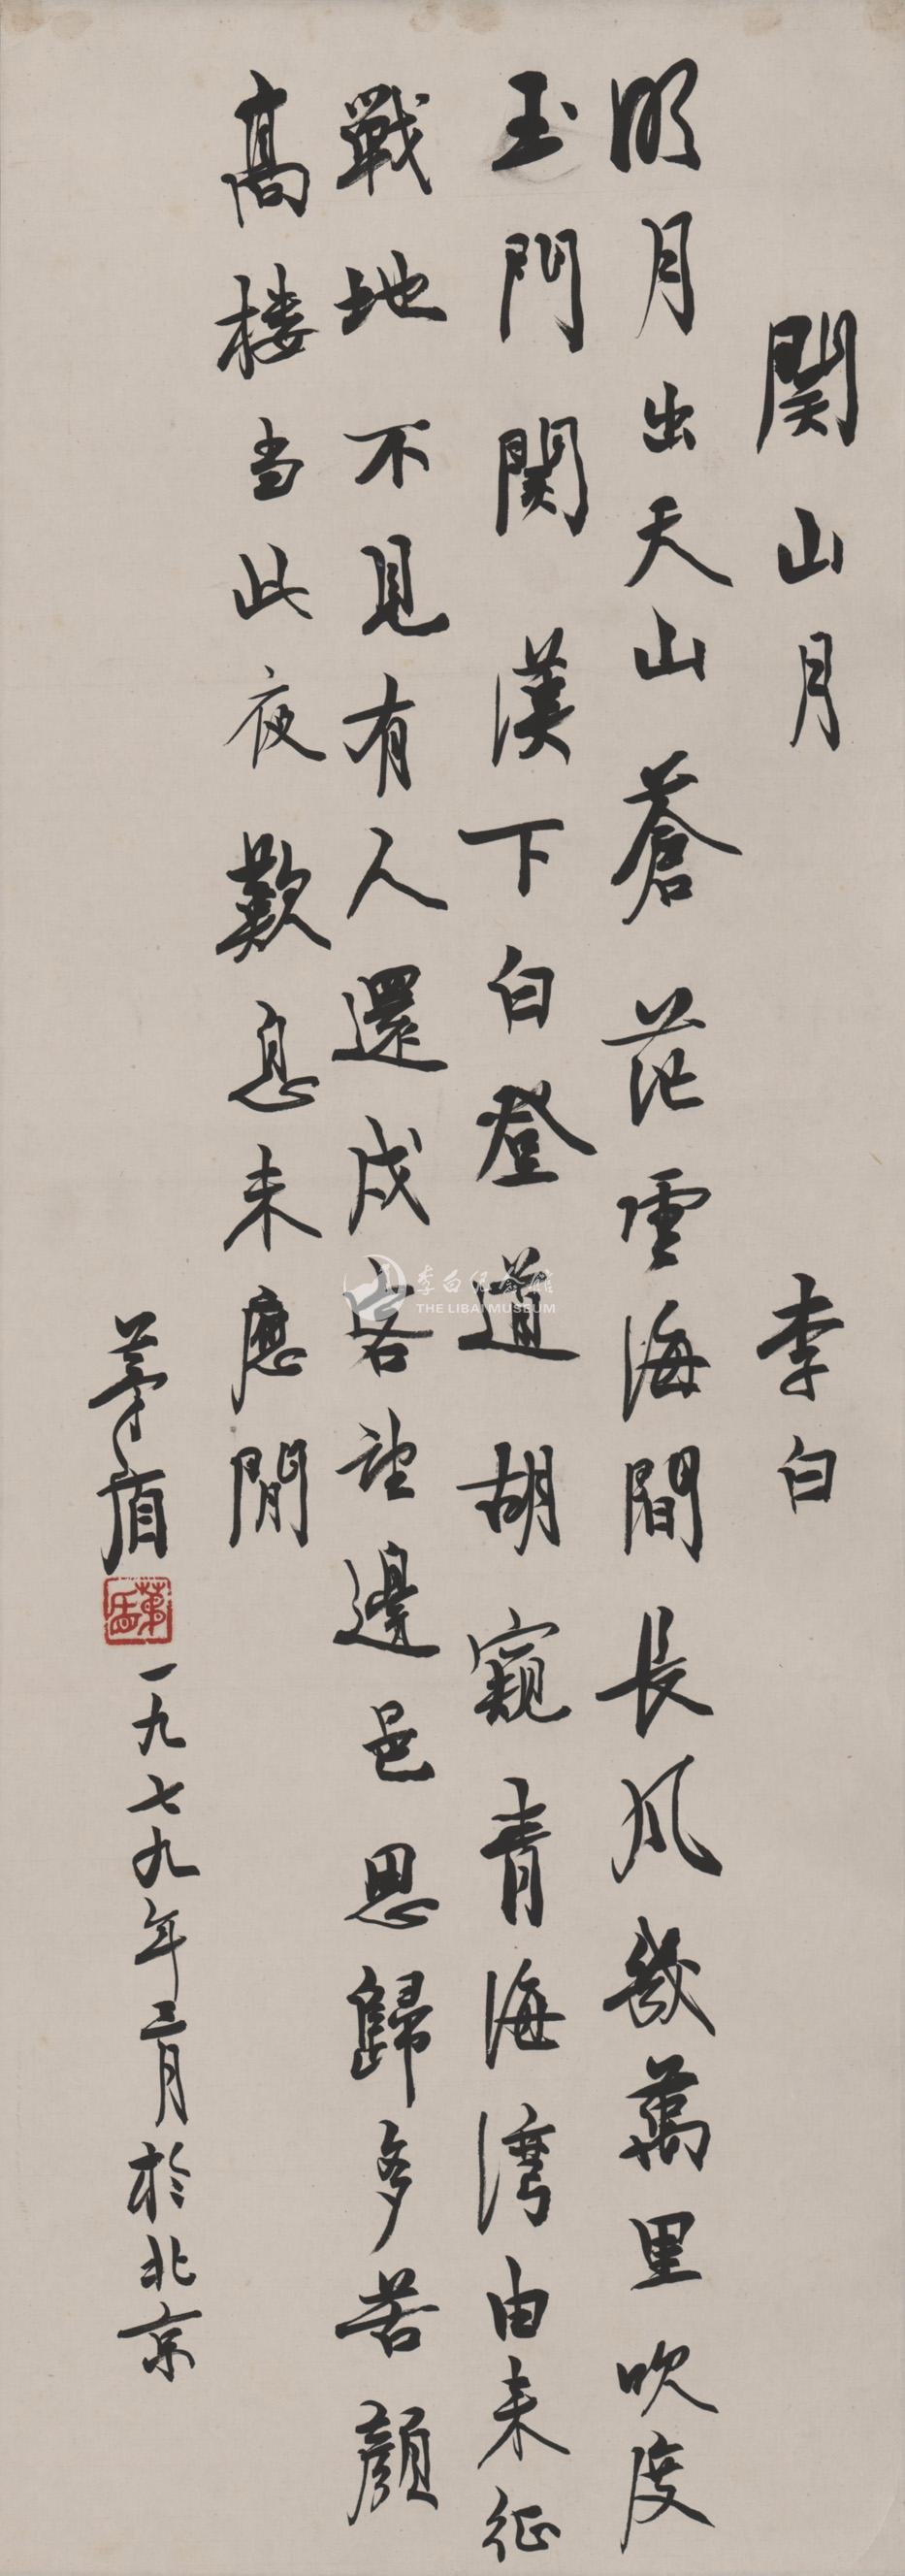 関山月 李白
明月出天山蒼茫雲海間長風幾萬里吹度
玉門関漢下白登道胡窺青海湾由来征
戰地不見有人還戍客望邊邑思歸多苦顏
高楼当此夜歎息未應閒
茅盾
一九七九年三月於北京
李白纪念馆
THE LIBAI MUSEUM